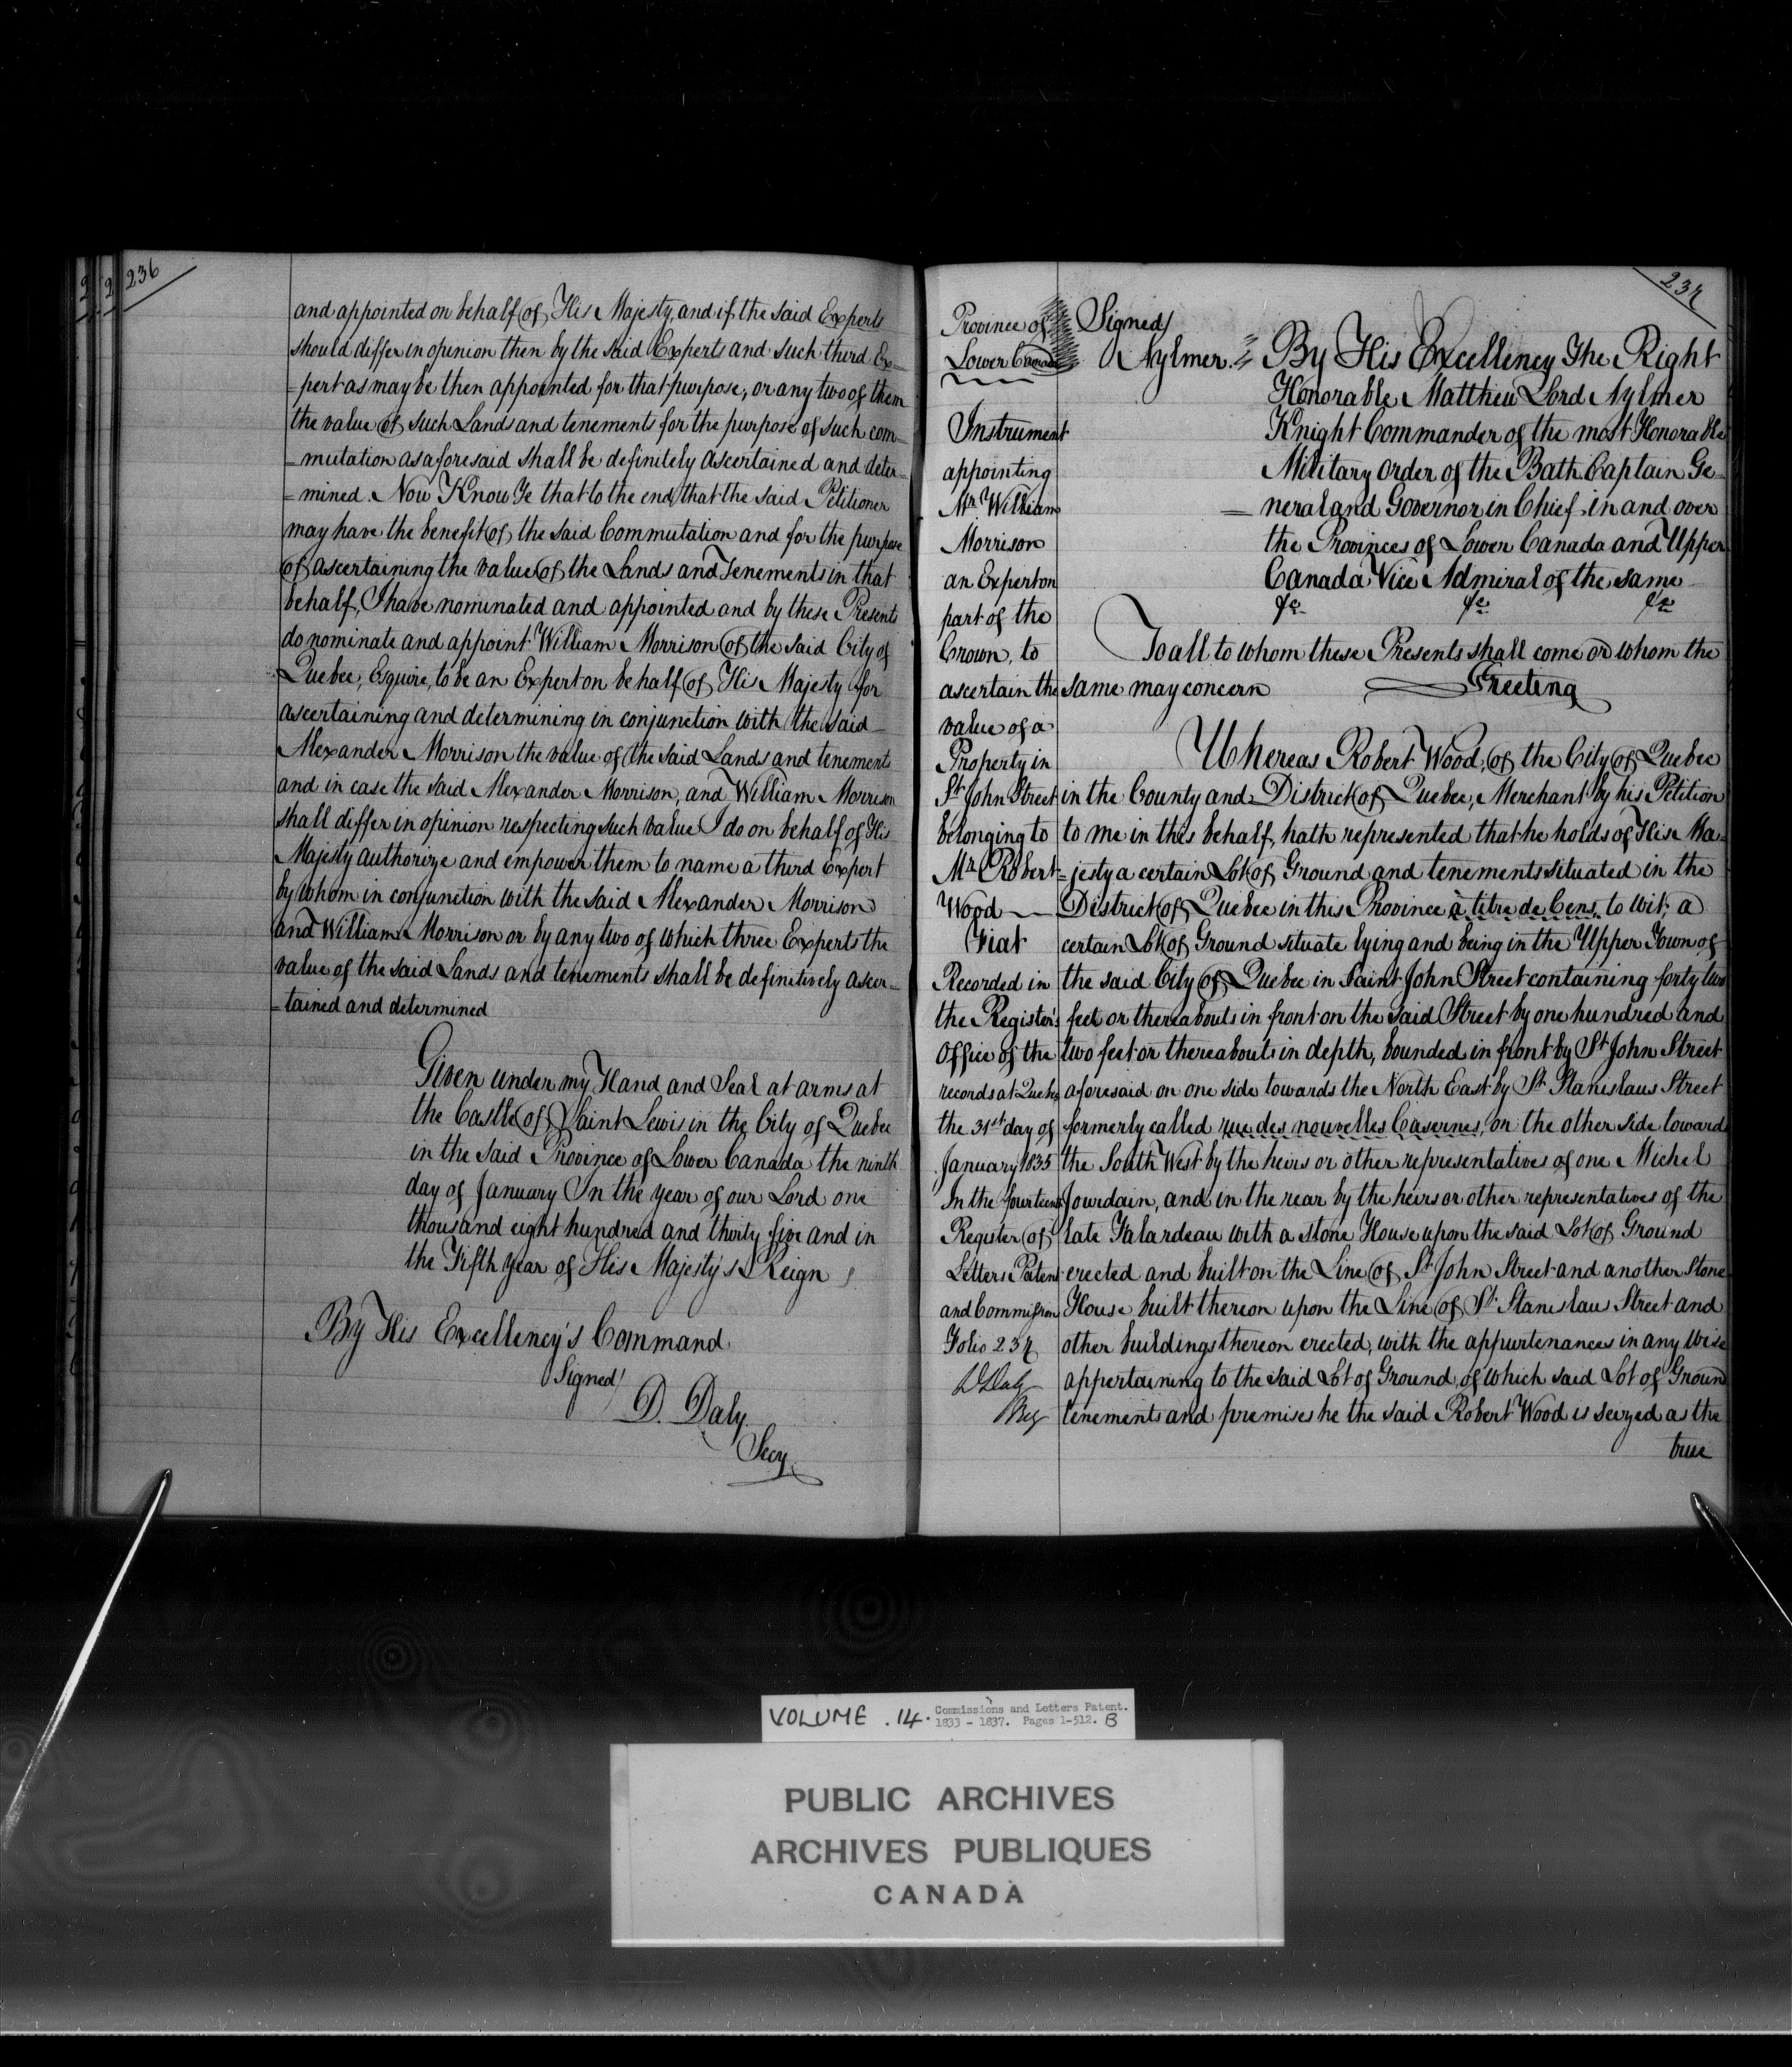 236
and appointed on behalf of His Majesty, and if the said Experts
should differ in opinion then by the said Experts and such third Ex-
=pert as may be then appointed for that purpose, or any two of them
the value of such Lands and tenements for the purpose of such com=
=mutation as aforesaid shall be definitely ascertained and deter=
=mined. Now Know Ye that to the end, that the said Petitioner
may have the benefit of the said Commutation and for the purpose
of ascertaining the value of the Lands and Tenements in that
behalf, I have nominated and appointed and by these Presents
do nominate and appoint William Morrison of the said City of
Quebec, Esquire, to be an Expert on behalf of His Majesty for
ascertaining and determining in conjunction with the said
Alexander Morrison the value of the said Lands and tenements
and in case the said Alexander Morrison, and William Morrison
shall differ in opinion respecting such value I do on behalf of His
Majesty authorize and empower them to name a third Expert
by whom in conjunction with the said Alexander Morrison
and William Morrison or by any two of which three Experts the
value of the said Lands and tenements shall be definitively ascer=
=tained and determined
Given under my Hand and Seal at arms at
the Castle of Saint Lewis in the City of Quebec
in the said Province of Lower Canada the ninth
day of January In the year of our Lord one
thousand eight hundred and thirty five and in
the Fifth year of His Majesty's Reign
By His Excellency's Command
Signed/
D. Daly
Secy
237
Province of
Lower Canada
Instrument
appointing
Mr. William
Morrison
an Expert on
part of the
Crown, to
ascertain the
value of a
Property in
St John Street
belonging to
Mr. Robert
Wood
Fiat
Recorded in
the Register's
Office of the
records at Quebec
the 31st day of
January 1835
In the fourteenth
Register of
Letters Patent
and Commission
Folio 237
D Daly
Reg
Signed/
Aylmer.
By His Excellency The Right
Honorable Matthew Lord Aylmer
Knight Commander of the most Honorable
Military Order of the Bath Captain Ge=
=neral and Governor in Chief in and over
the Provinces of Lower Canada and Upper
Canada Vice Admiral of the same
&c &c &c
To all to whom these Presents shall come or whom the
same may concern Greeting
Whereas Robert Wood, of the City of Quebec
in the County and District of Quebec, Merchant by his Petition
to me in this behalf, hath represented that he holds of His Ma=
=jesty a certain Lot of Ground and tenements situated in the
District of Quebec in this Province à titre de Cens, to wit, a
certain Lot of Ground situate lying and being in the Upper Town of
the said City of Quebec in Saint John Street containing forty two
feet or thereabouts in front on the said Street by one hundred and
two feet or thereabouts in depth, bounded in front by St John Street
aforesaid on one side towards the North East by St. Stanislaus Street
formerly called rue des nouvelles Casernes, on the other side towards
the South West by the heirs or other representatives of one Michel
Jourdain, and in the rear by the heirs or other representatives of the
late Falardeau with a stone House upon the said Lot of Ground
erected and built on the Line of St John Street and another Stone
House built thereon upon the Line of St. Stanislaus Street and
other buildings thereon erected, with the appurtenances in any wise
appertaining to the said Lot of Ground, of which said Lot of Ground
tenements and premises he the said Robert Wood is seized as the
true
VOLUME . 14 . Commissions and Letters Patent.
1833 - 1837. Pages 1-512. B
PUBLIC ARCHIVES
ARCHIVES PUBLIQUES
CANADA